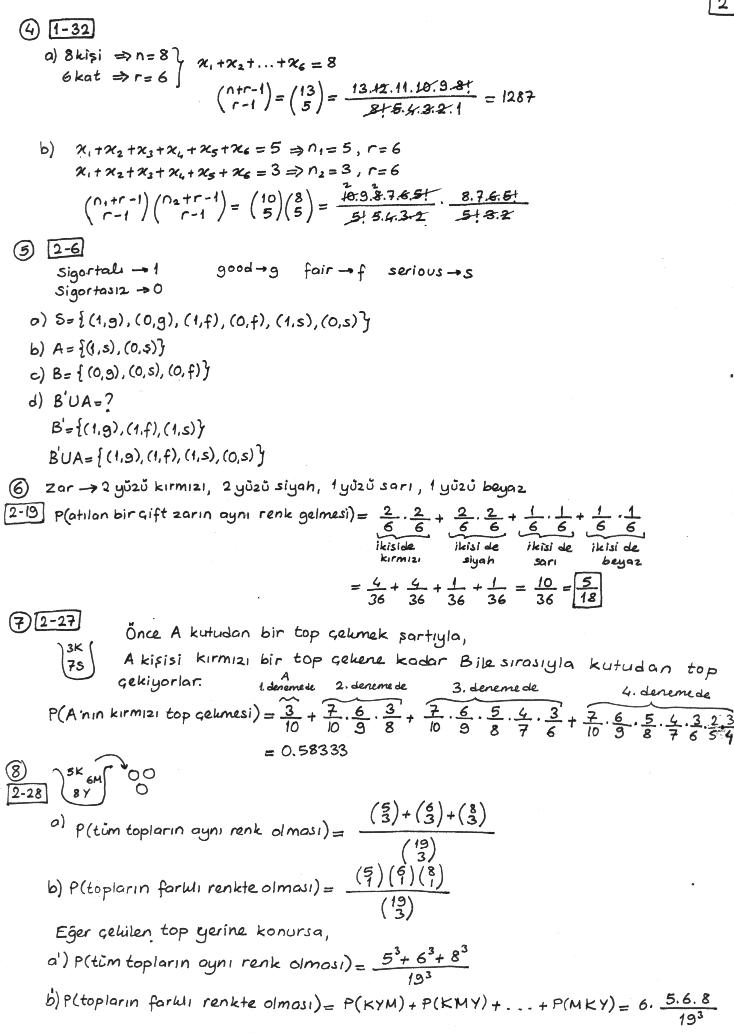 2
④ 1-32
a) 8 kişi ⇒ n = 8 } x₁+x₂+...+x₆ = 8
6 kat ⇒ r = 6
(n+r-1 / r-1) = (13 / 5) = 13.12.11.10.9.8! / 8!.5.4.3.2.1 = 1287
b) x₁+x₂+x₃+x₄+x₅+x₆ = 5 ⇒ n₁ = 5, r = 6
x₁+x₂+x₃+x₄+x₅+x₆ = 3 ⇒ n₂ = 3, r = 6
(n₁+r-1 / r-1)(n₂+r-1 / r-1) = (10 / 5)(8 / 5) = 10.9.8.7.6.5! / 5! 5.4.3.2 . 8.7.6.5! / 5!.3.2
⑤ 2-6
Sigortalı → 1 good → g fair → f serious → s
Sigortasız → 0
a) S = {(1,g), (0,g), (1,f), (0,f), (1,s), (0,s)}
b) A = {(1,s), (0,s)}
c) B = {(0,g), (0,s), (0,f)}
d) B'UA = ?
B' = {(1,g), (1,f), (1,s)}
B'UA = {(1,g), (1,f), (1,s), (0,s)}
⑥ Zar → 2 yüzü kırmızı, 2 yüzü siyah, 1 yüzü sarı, 1 yüzü beyaz
2-19 P(atılan bir çift zarın aynı renk gelmesi) = 2/6 . 2/6 + 2/6 . 2/6 + 1/6 . 1/6 + 1/6 . 1/6
ikiside kırmızı ikisi de siyah ikisi de sarı ikisi de beyaz
= 4/36 + 4/36 + 1/36 + 1/36 = 10/36 = 5/18
⑦ 2-27 Önce A kutudan bir top çekmek şartıyla,
3K
7S
A kişisi kırmızı bir top çekene kadar B ile sırasıyla kutudan top
çekiyorlar.
A
1. denemede 2. denemede 3. denemede 4. denemede
P(A'nın kırmızı top çekmesi) = 3/10 + 7/10 . 6/9 . 3/8 + 7/10 . 6/9 . 5/8 . 4/7 . 3/6 + 7/10 . 6/9 . 5/8 . 4/7 . 3/6 . 2/5 . 3/4
= 0.58333
⑧
2-28
5K 6M
8Y
a) P(tüm topların aynı renk olması) = (5 / 3)+(6 / 3)+(8 / 3) / (19 / 3)
b) P(topların farklı renkte olması) = (5 / 1)(6 / 1)(8 / 1) / (19 / 3)
Eğer çekilen top yerine konursa,
a') P(tüm topların aynı renk olması) = 5³+6³+8³ / 19³
b') P(topların farklı renkte olması) = P(KYM) + P(KMY) + ... + P(MKY) = 6. 5.6.8 / 19³